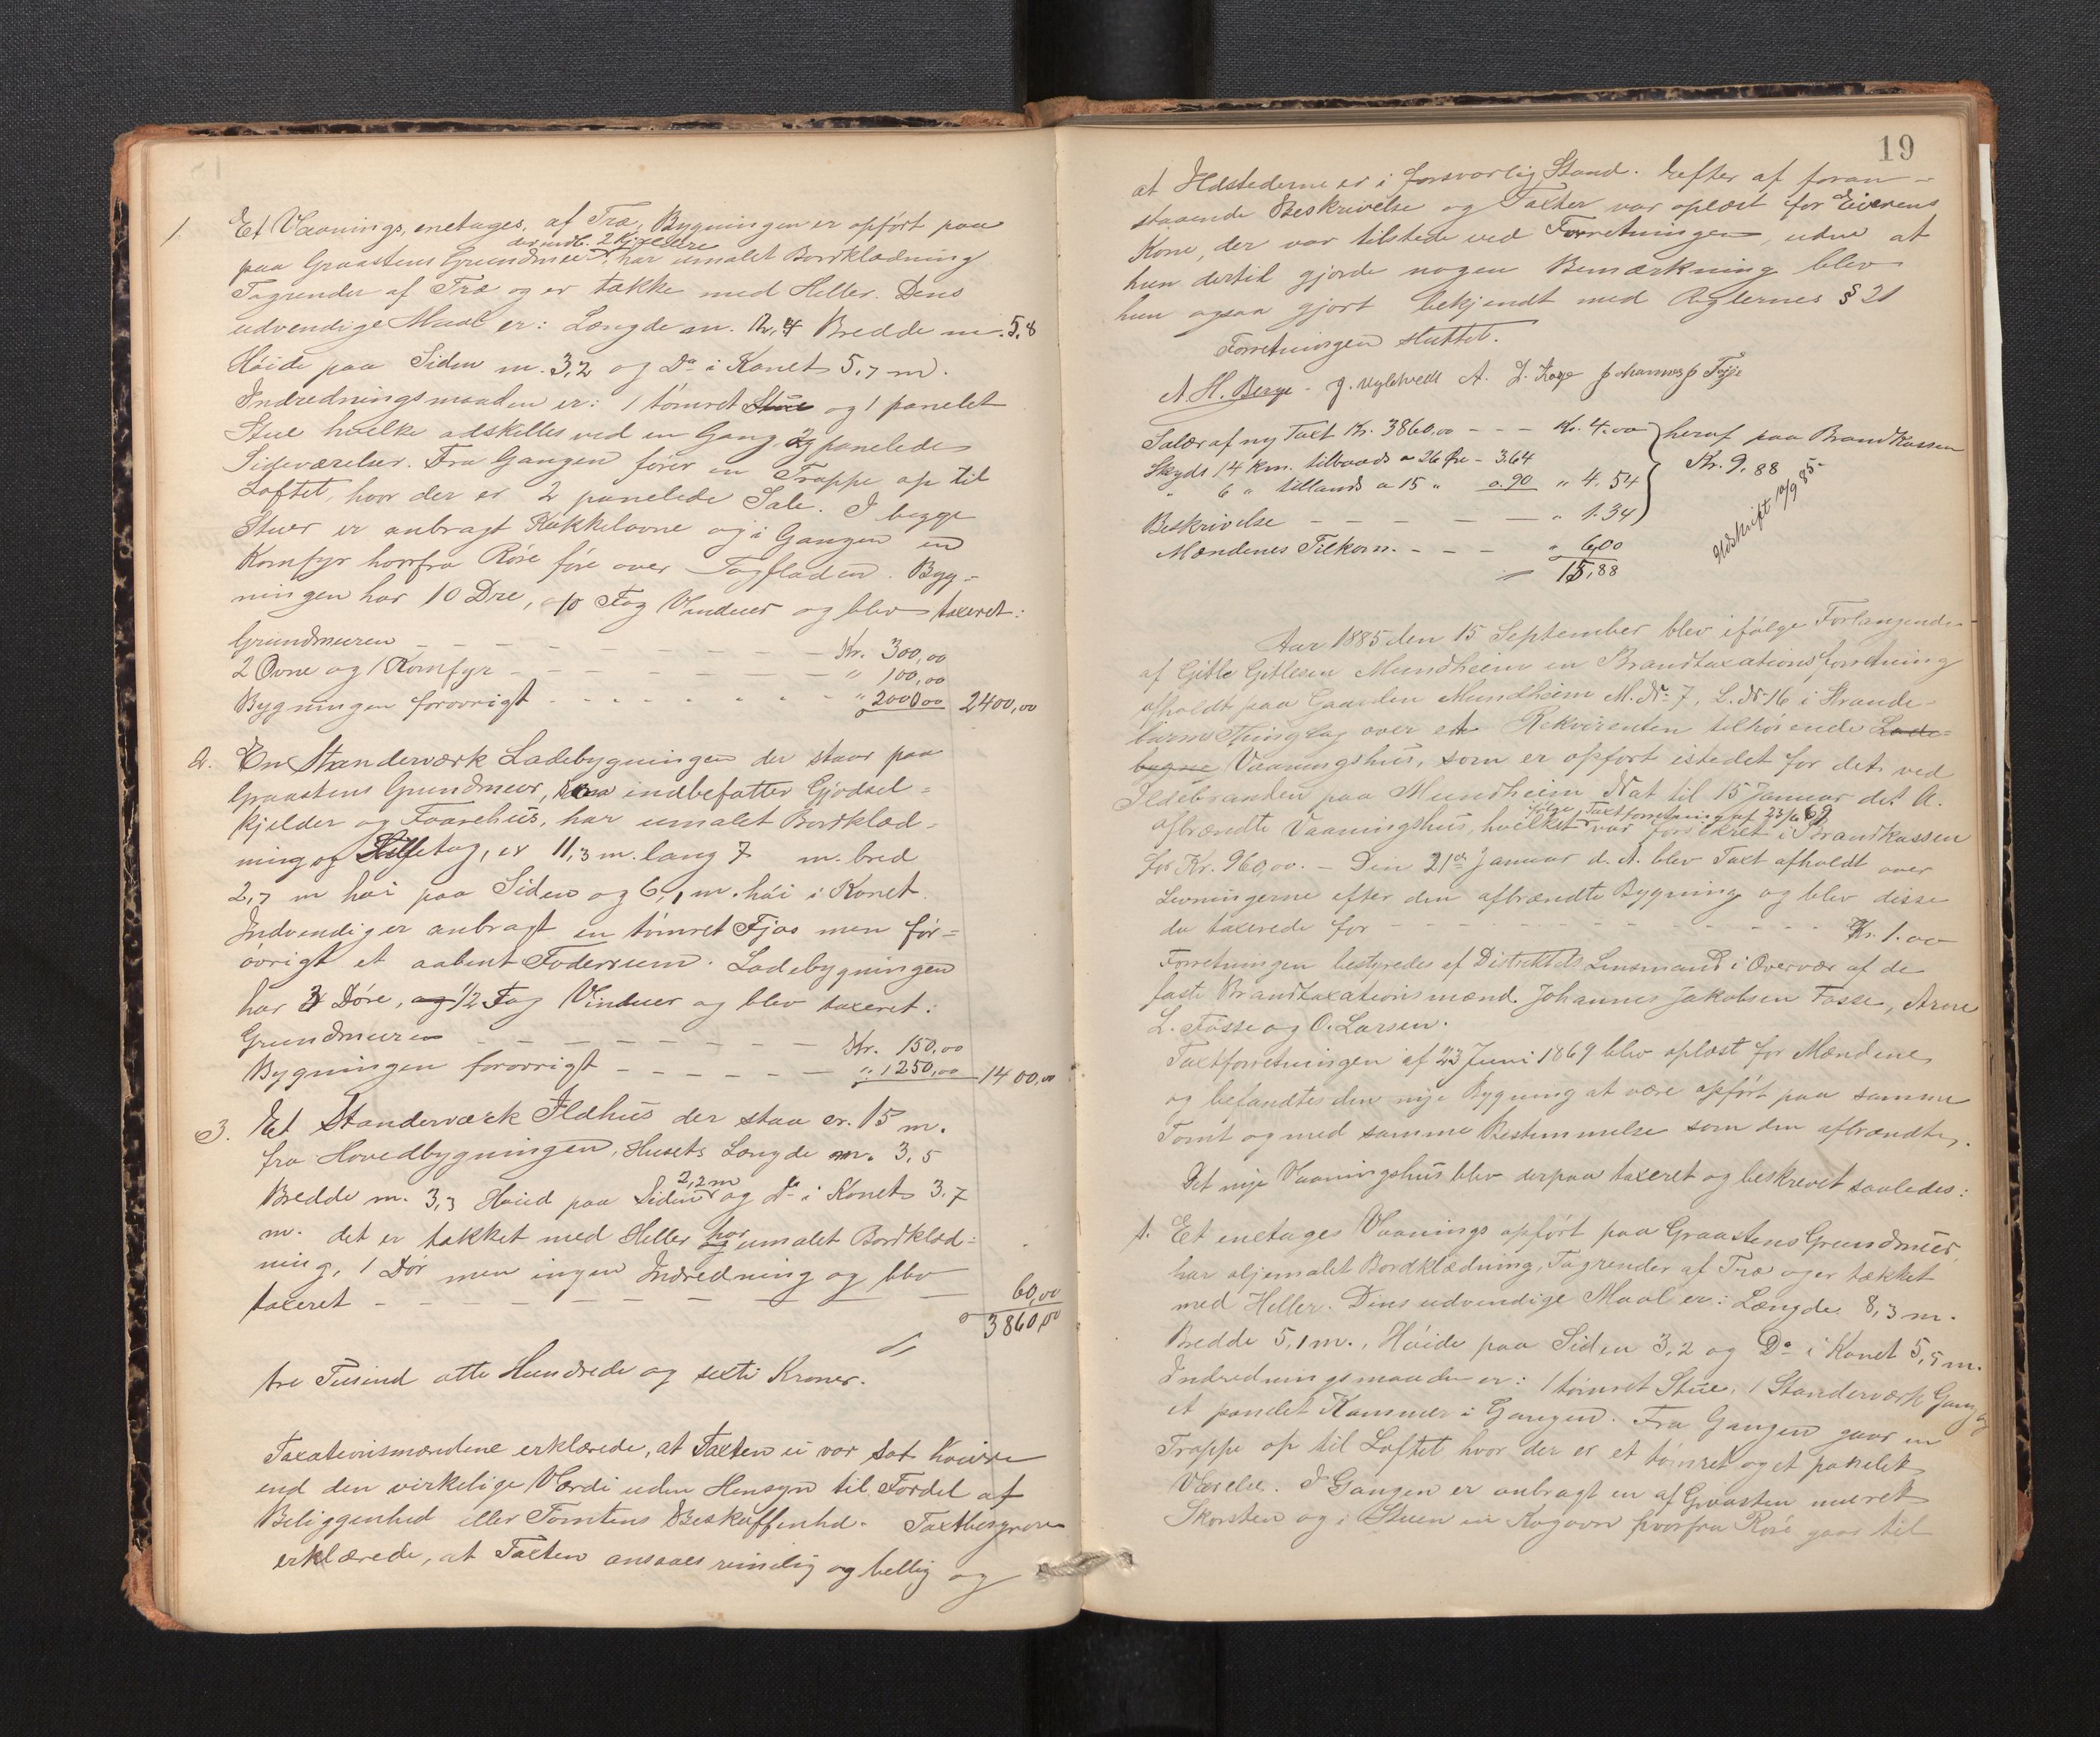 1. Et Vaanings, enetages, af Træ, Bygningen er opført paa
paa Graastens Grundmur derindb. 2 Kjældere har umalet Bordklædning
Tagrender af Træ og er tække med Heller. Dens
udvendige Maal er: Længde m. 12,4 Bredde m. 5,8
Høide paa Siden m. 3,2 og Do i Konet 5,7 m.
Indredningsmaaden er: 1 tømret Stue og 1 panelet
Stue hvilke adskilles ved en Gang og 2 panelede
Sideværelser. Fra Gangen fører en Trappe op til
Loftet, hvor der er 2 panelede Sale. I begge
Stuer er anbragt Kakkelovne og i Gangen en
Komfyr hvorfra Røre føre over Tagfladen. Byg-
ningen har 10 Dre, 10 Fag Vinduer og blev taxeret:
Grundmuren - - - Kr. 300,00
2 Ovne og 1 Komfyr - - - " 100,00
Bygningen forøvrigt - - - " 2000,00 2400,00
2. En Standerværk Ladebygningen der staar paa
Graastens Grundmur, indbefatter Gjødsel-
kjelder og Faarehus, har umalet Bordklæd-
ning og Helletag, er 11,3 m. lang 7 m. bred
2,7 m høi paa Siden og 6,1 m. høi i Konet.
Indvendig er anbragt en tømret Fjøs men for-
øvrigt et aabent Foderrum. Ladebygningen
har 3 Døre, og 1/2 Fag Vinduer og blev taxeret:
Grundmuren - - - Kr. 150,00
Bygningen forøvrigt - - - " 1250,00 1400,00
3. Et Standerværk Ildhus der staa er. 15 m.
fra Hovedbygningen, Husets Længde m. 3,5
Bredde m. 3,3 Høied paa Siden 2,2 m og Do i Konet 3,7
m. det er tækket med Heller og har umalet Bordklæd-
ning, 1 Dør men ingen Indredning og blev
taxeret - - - 60,00
3860,00
tre Tusind otte Hundrede og sexti Kroner.
Taxationsmændene erklærede, at Taxten ei var sat høiere
end den virkelige Værdi uden Hensyn til Fordel af
Beliggenhed eller Tomtens Beskaffenhd. Taxtbesyrere
erklærede, at Taxten ansaaes rimelig og billig og
19
at Ildstederne er i forsvarlig Stand. Eefter af foran-
staaende Beskrivelse og Taxter var oplæst for Eierens
Kone, der var tilstede ved Forretningen, uden at
hun dertil gjorde nogen Bemærkning blev
hun ogsaa gjort bekjendt med Reglernes § 21
Forretningen sluttet.
A. H. Berge - J. A. L. Johannes J
Salær af ny Taxt Kr. 3860,00 - - - Kr. 4.00 heraf paa Brandkassen
Skyds 14 Km. tilvands a 26 Øre - 3.64 Kr. 9,88
" 6 " tillands a 15 " 0.90 " 4.54
Beskrivelse - - - " 1.34
Mændenes Tilkom. - - - " 6,00
15,88
Udskrift 12/9 85-
Aar 1885 den 15 September blev ifølge Forlangende
af Gitle Gitlesen Mundheim en Brandtaxationsforretning
afholdt paa Gaarden Mundheim M. No 7, L. No 16 i Strande-
barms Thinglag over et Rekvirenten tilhørende Lade-
bygne Vaaningshus, som er opført istedet for det ved
Ildebranden paa Mundheim Nat til 15 Januar d. A.
afbrændte Vaaningshus, hvilket ifølge Taxtforretning af 23/6 69 var forsikret i Brandkassen
for Kr. 960,00. - Den 21de Januar d. A. blev Taxt afholdt over
Levningerne efter den afbrændte Bygning og blev disse
da taxerede for - - - Kr. 1.00
Forretningen bestyredes af Distriktets Lensmand i Overvær af de
faste Brandtaxationsmænd Johannes Jakobsen Fosse, Arne
L. Fosse og O. Larsen.
Taxtforretningen af 23 Juni 1869 blev oplæst for Mændene
og befandtes den nye Bygning at være opført paa samme
Tomt og med samme Bestemmelse som den afbrændte.
Det nye Vaaningshus blev derpaa taxeret og beskrevet saaledes:
1. Et enetages Vaanings opført paa Graastens Grundmur
har oljemalet Bordklædning, Tagrender af Træ og er tækket
med Heller. Dens udvendige Maal er: Længde 8,3 m.
Bredde 5,1 m., Høide paa Siden 3,2 og Do i Konet 5,5 m.
Indredningsmaaden er: 1 tømret Stue, 1 Standerværk Gang og
et panelet Kammer i Gangen. Fra Gangen gaar en
Trappe op til Loftet hvor der er et tømret og et panelet
Værelse. I Gangen er anbragt en af Graasten muret
Skorsten og i Stuen en Kogovn hvorfra Røre gaar til